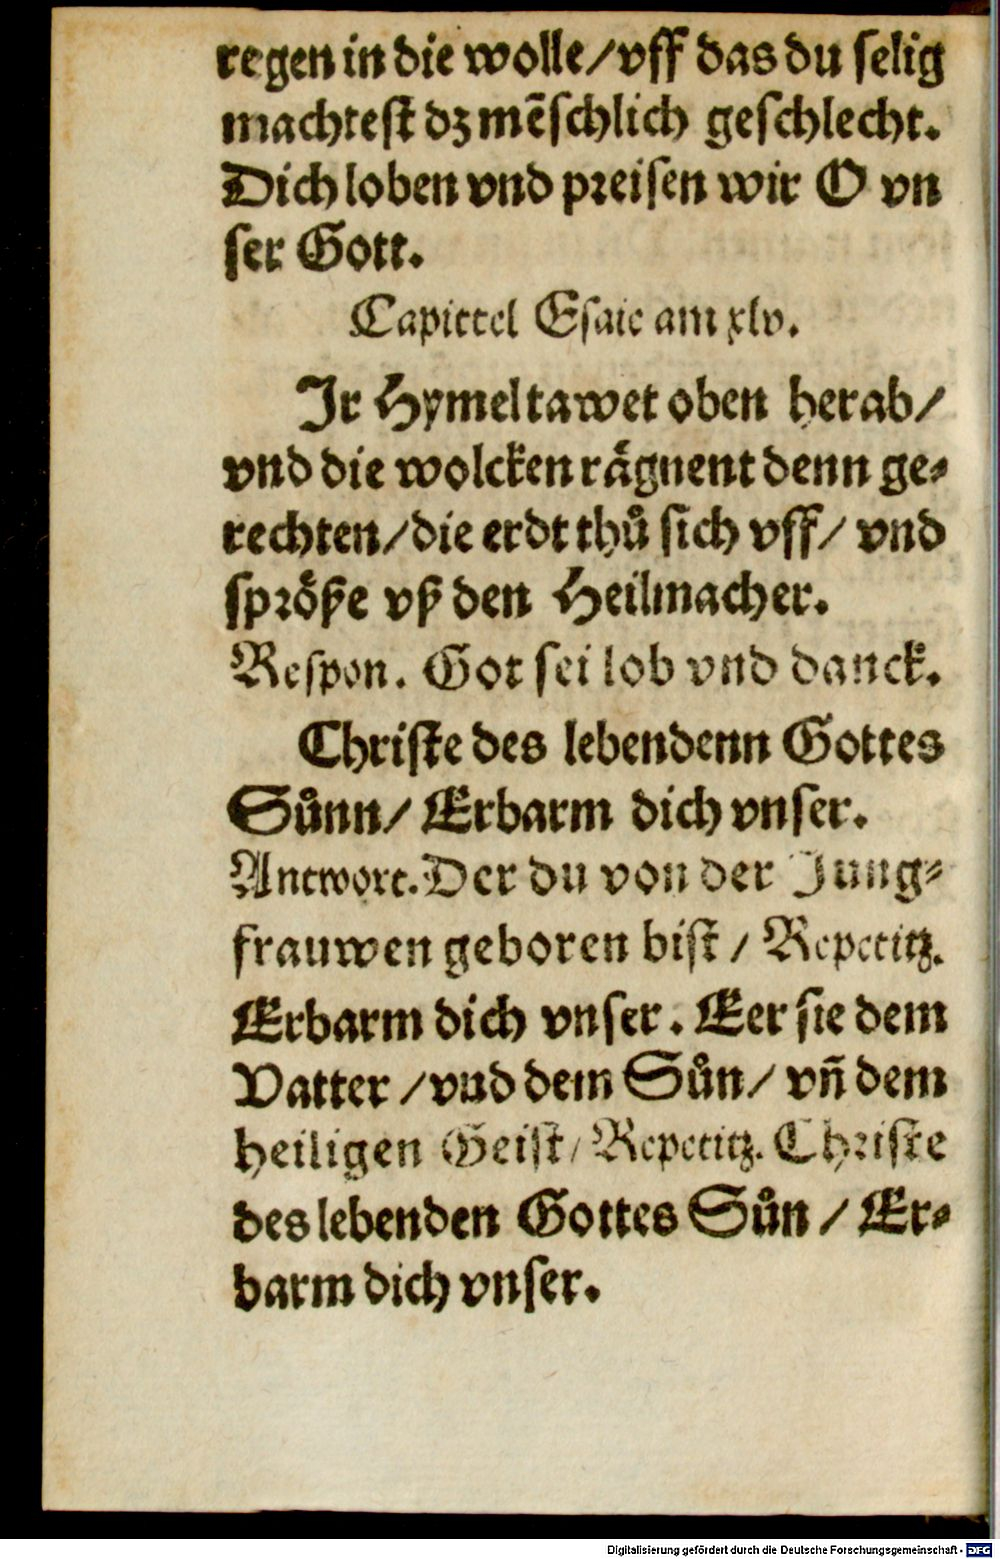 regen in die wolle/vff das du selig
machtest dz mēschlich geschlecht.
Dich loben vnd preisen wir O vn
ser Gott.
Capittel Esaie am xlv.
Jr Hymel tawet oben herab/
vnd die wolcken rågnent denn ge⸗
rechten/die erdt thů sich vff/ vnd
spröße vß den Heilmacher.
Respon. Got sei lob vnd danck.
Christe des lebendenn Gottes
Sůnn/ Erbarm dich vnser.
Antwort. Der du von der Jung⸗
frauwen geboren bist / Repetitz.
Erbarm dich vnser. Eer sie dem
Vatter /vnd dem Sůn/ vn̄ dem
heiligen Geist/ Repetitz. Christe
des lebenden Gottes Sůn / Er⸗
barm dich vnser.
Digitalisierung gefördert durch die Deutsche Forschungsgemeinschaft - DFG